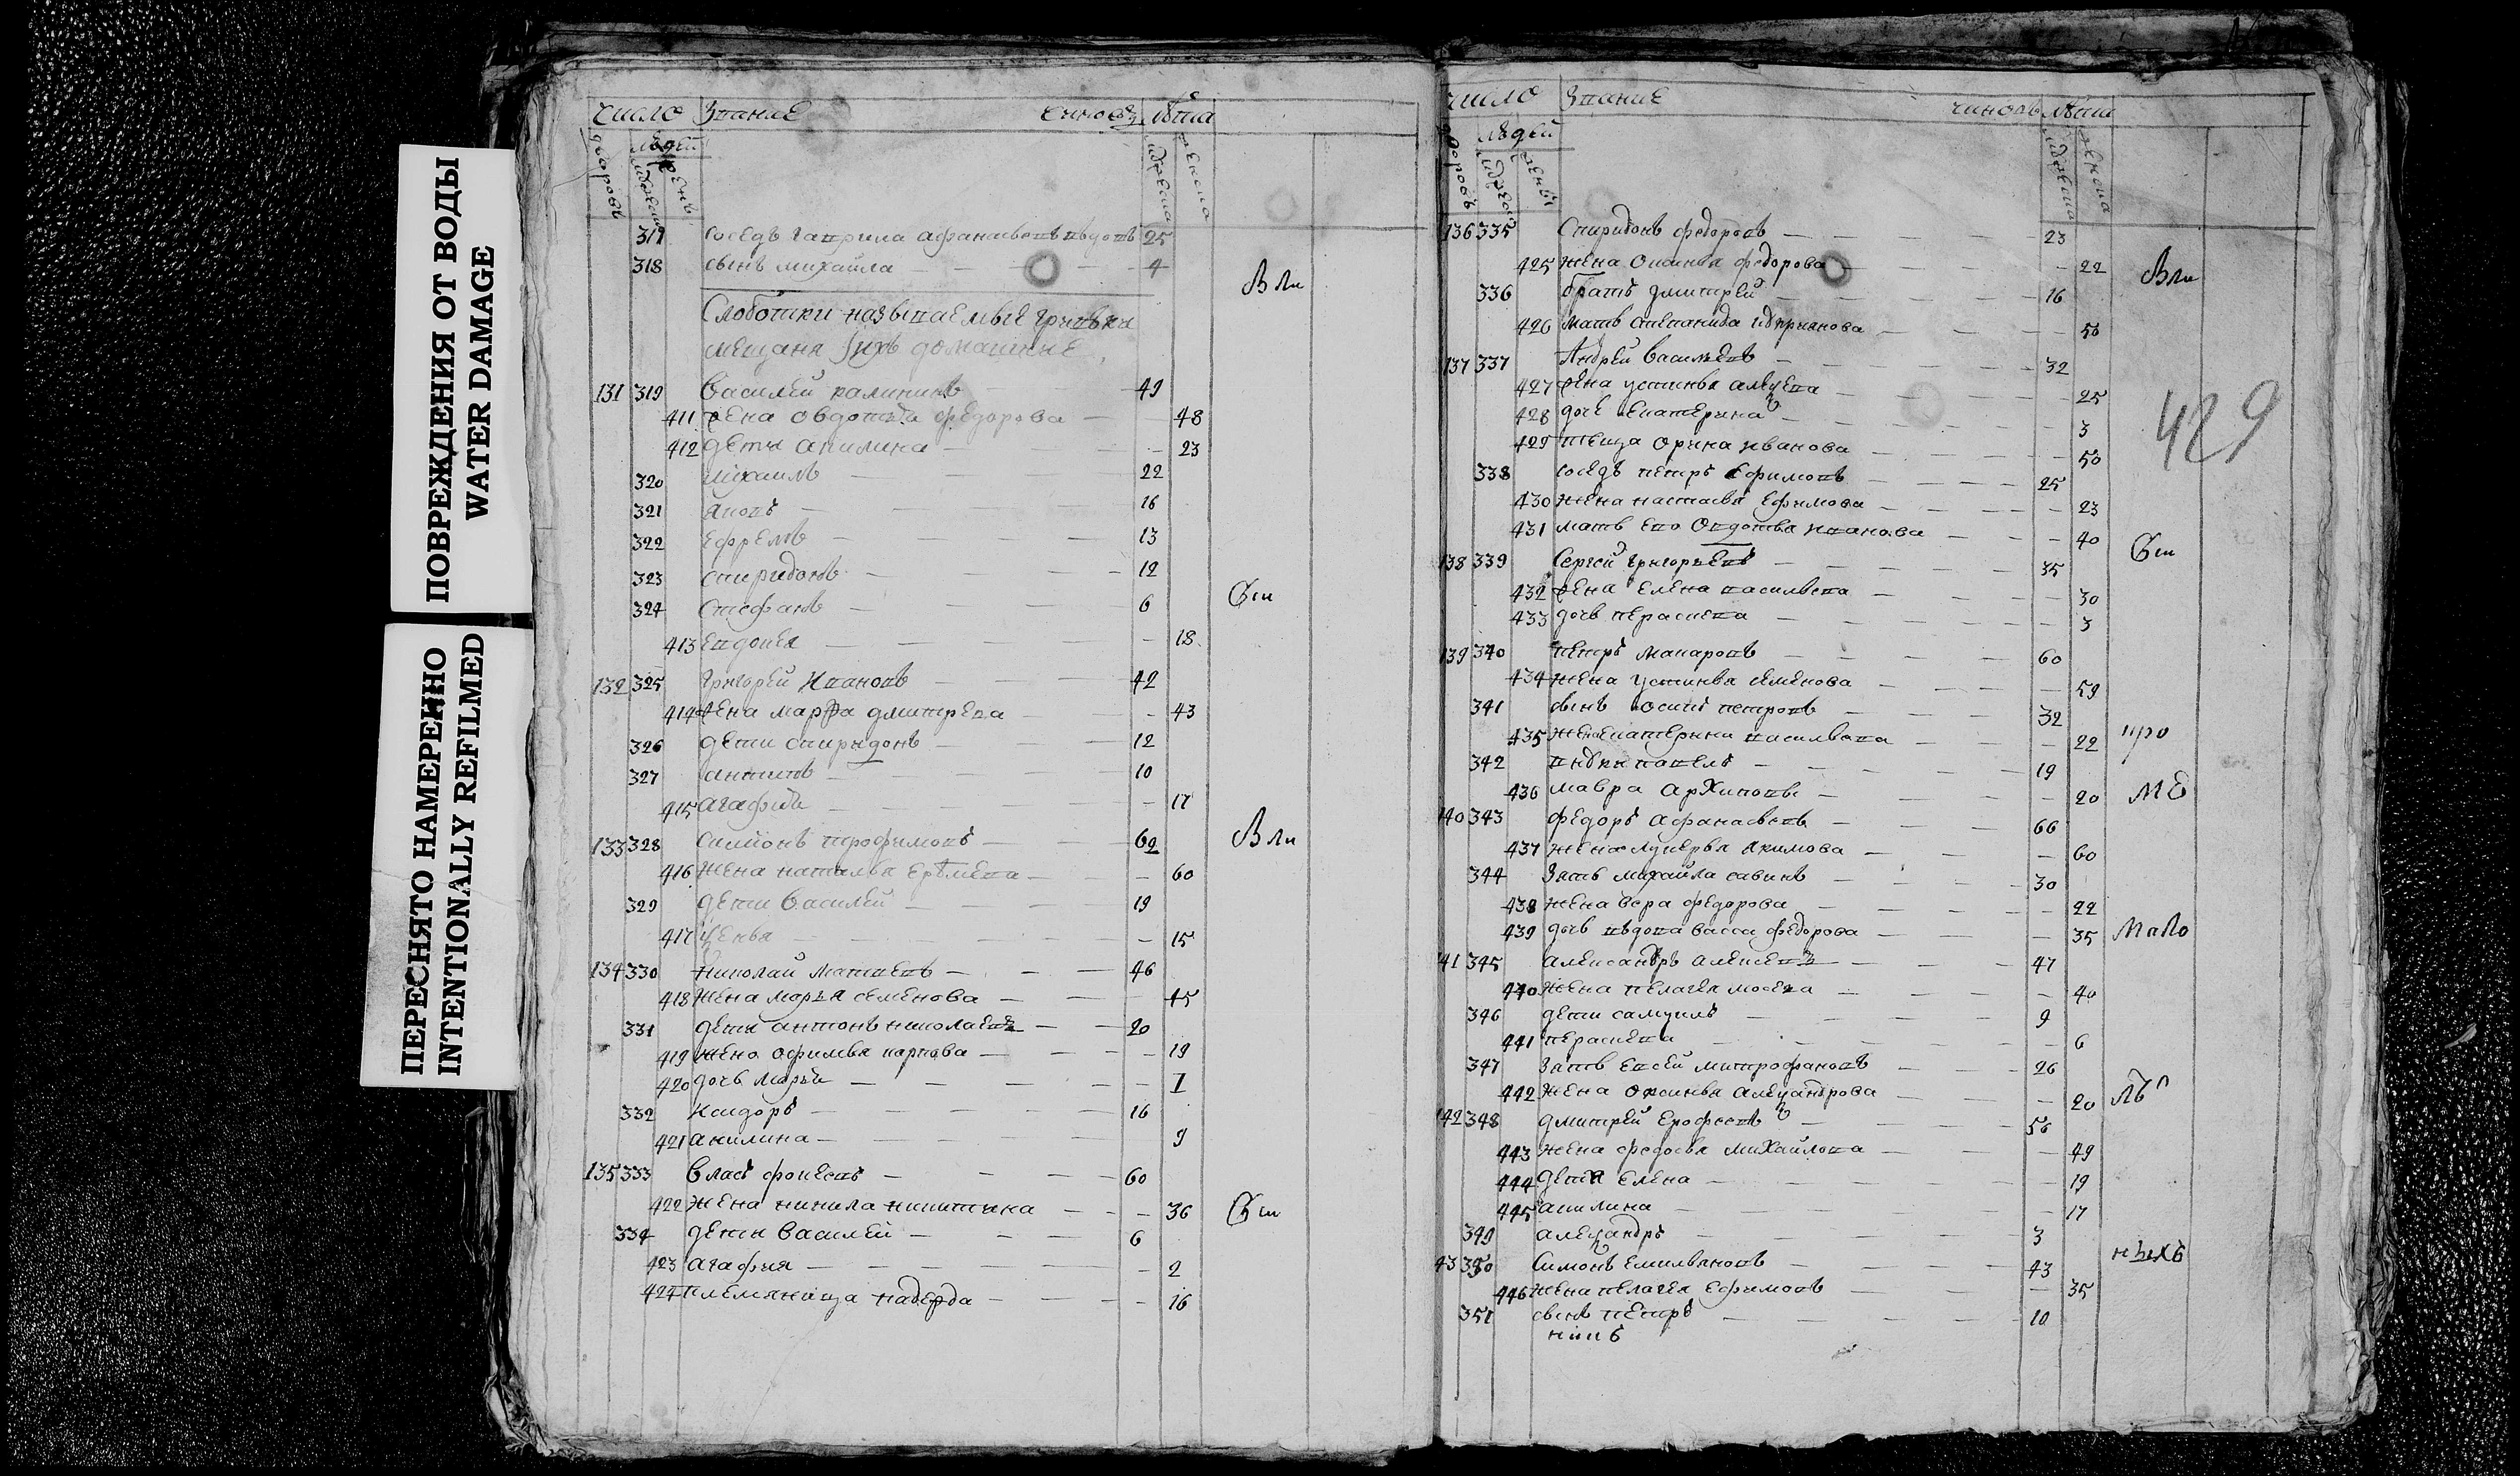 ПОВРЕЖДЕНИЯ ОТ ВОДЫ
WATER DAMAGE
ПЕРЕСНЯТО НАМЕРЕННО
INTENTIONALLY REFILMED
число Звание чиновъ лѣта
людей
дворовъ
317 соседъ гаврила афанасьевъ вдовъ 25
318 сынъ михайла 4
Слоботки называемые
мещаня ихъ домашние
131 319 Василей калининъ 49
411 жена овдотья федорова 48
412 дети акилина 23
320 михаилъ 22
321 яковъ 16
322 ефремъ 13
323 спиридонъ 12
324 стефанъ 6
413 евдокея 18
132 325 григорей ивановъ 42
414 жена марфа дмитрева 43
326 дети спиридонъ 12
327 антипъ 10
415 агафия 17
133 328 симионъ трофимовъ 62
416 жена наталья 60
329 дети василей 19
417 15
134 330 николай матвеевъ 46
418 жена марья семенова 45
331 дети антонъ николаевъ 20
419 жена офимья карпова 19
420 дочь марья 1
332 исидоръ 16
421 акилина 9
135 333 власъ фокеевъ 60
422 жена никила никитина 36
334 дети василей 6
423 агафия 2
424 племяница надежда 16
Вли
Вли
число Звание чиновъ лѣта
людей
дворовъ
136 335 Спиридонъ федоровъ 23
425 жена оксинья федорова 22
336 братъ дмитрей 16
426 мать степанида 50
137 337 Андрей васильевъ 32
427 жена устинья алеѯева 25
428 дочь екатерина 3
429 теща орина иванова 50
338 соседъ петръ ефимовъ 25
430 жена настасья ефимова 23
431 мать ево овдотья иванова 40
138 339 Сергей григорьевъ 35
432 жена елена васильева 30
433 дочь парасковья 3
139 340 петръ макаровъ 60
434 жена устинья семенова 59
341 сынъ осипъ петровъ 32
435 жена екатерина васильева 22
342 павелъ 19
436 мавра архипова 20
140 343 федоръ афанасьевъ 66
437 жена лукерья якимова 60
344 зять михайла савинъ 30
438 жена вера федорова 22
439 дочь вдова васса федорова 35
141 345 александръ алексеевъ 47
440 жена пелагея 40
346 дети самуилъ 9
441 6
347 зять евсей митрофановъ 26
442 жена оксинья алеѯандрова 20
142 348 дмитрей ерофеевъ 50
443 жена федосья михайлова 49
444 дети елена 19
445 акилина 17
349 алеѯандръ 3
143 350 симонъ емильяновъ 43
446 жена пелагея ефимова 35
351 сынъ петръ 10
Вли
429
про
ме
мало